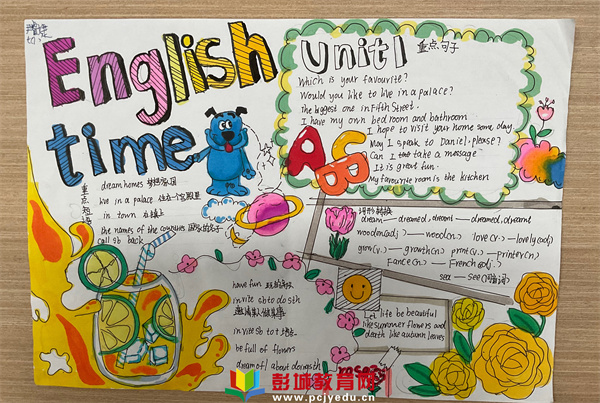 English
time
Unit 1
重点句子
Which is your favourite?
Would you like to live in a palace?
The biggest one in Fifth Street.
I have my own bedroom and bathroom
I hope to visit your home some day
May I speak to Daniel, please?
Can I take a message
It is great fun.
My favourite room is the kitchen
ABC
重点短语
dream homes 梦想家园
live in a palace 住在一个宫殿里
in town
the names of the countries
call sb back
have fun
invite sb to do sth
invite sb to
be full of flowers
dream of / about doing sth
词形转换
dream — dreamed, dreamt — dreamed, dreamt
wood(n.) love (v.) — lovely(adj)
growth(n.) print(v.) — printer(n)
France(n.) — French(adj.)
sea — see
Let life be beautiful
like summer flowers and
death like autumn leaves
彭城教育网
www.pcjyedu.cn